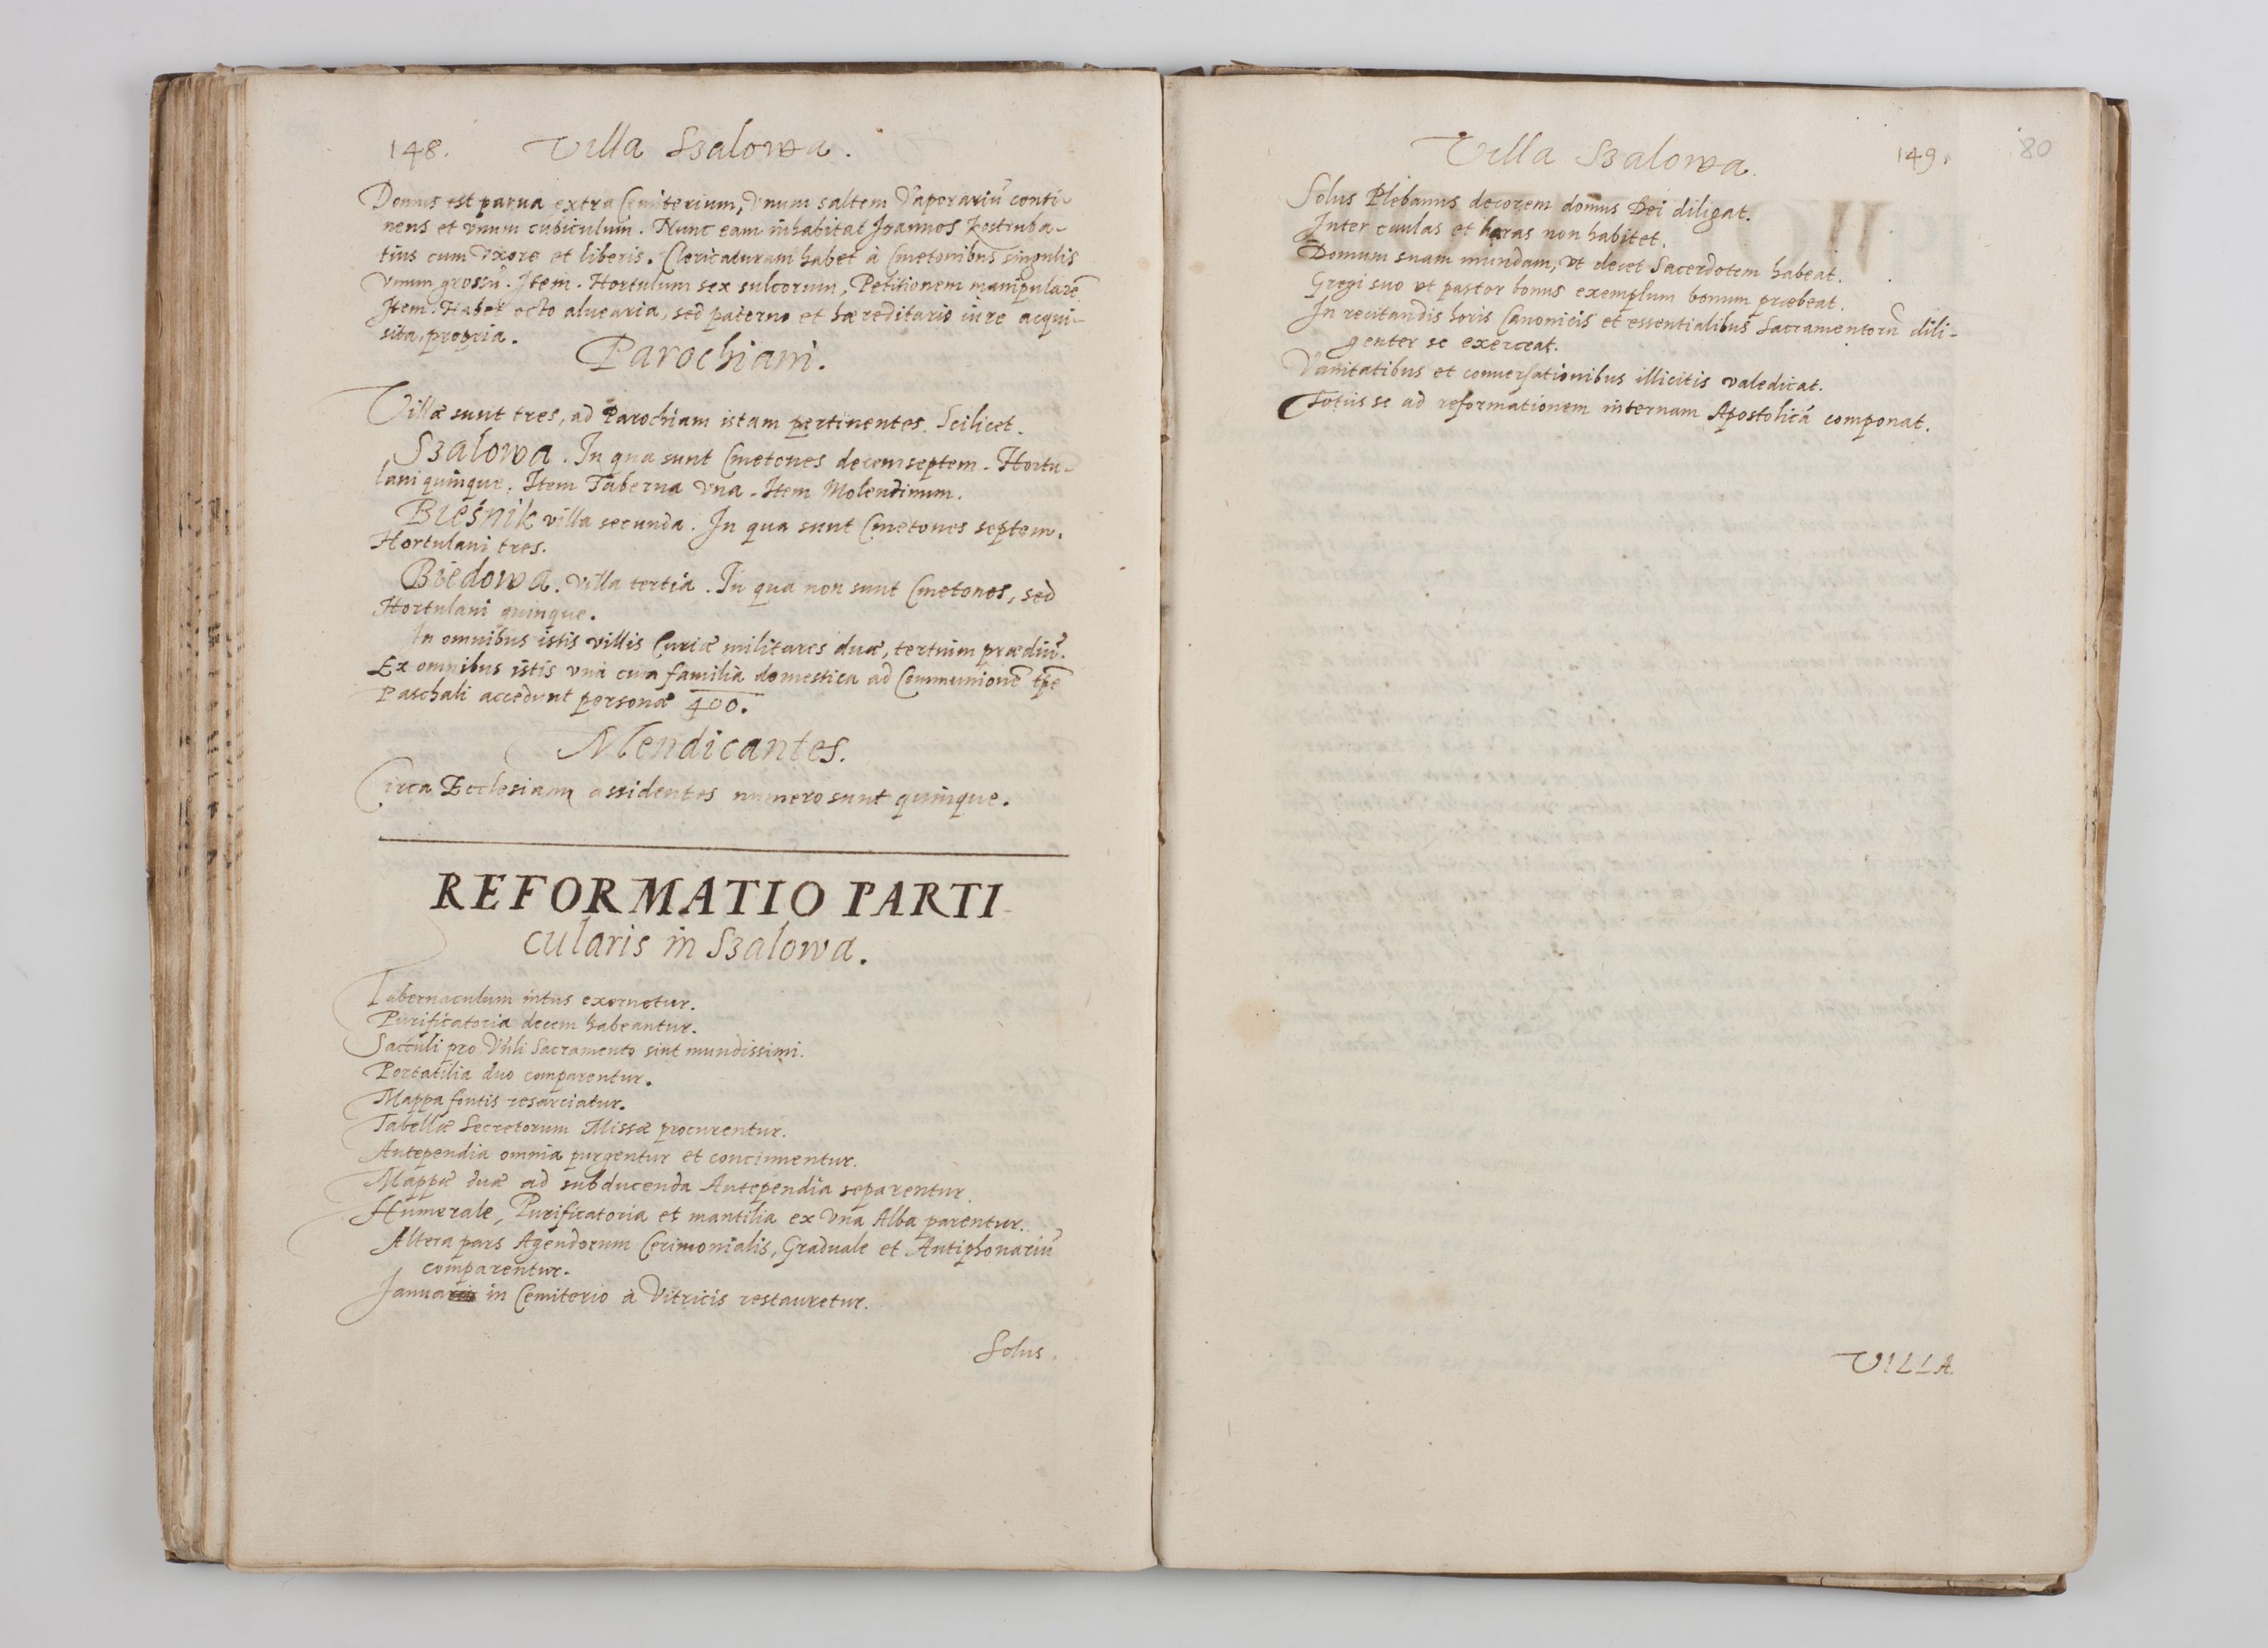 148. Villa Szalowa.
Domus est parua extra Cemiterium, vnum saltem Vaporariũ conti-
nens et vnum cubiculum. Nunc eam inhabitat Joannes Kostruba-
tius cum Vxore et liberis. Clericaturam habet à Cmetonibus singulis
Vnum grossũ. Item. Hortulum sex sulcorum, Petitionem manipularẽ
Item. Habet octo aluearia, sed paterno et hæreditario iure acqui-
sita, propria.
Parochiani.
Villæ sunt tres, ad Parochiam istam pertinentes. Scilicet.
Szalowa. In qua sunt Cmetones decemseptem. Hortu-
lani quinque. Item Taberna vna. Item Molendinum.
Bieśnik villa secunda. In qua sunt Cmetones septem.
Hortulani tres.
Biedowa. villa tertia. In qua non sunt Cmetones, sed
Hortulani quinque.
In omnibus istis villis Curiæ militares duæ, tertium prædiũ.
Ex omnibus istis vnà cum familia domestica ad Communionẽ tp̃e
Paschali accedunt personæ 400.
Mendicantes.
Circa Ecclesiam assidentes numero sunt quinque.
REFORMATIO PARTI
cularis in Szalowa.
Tabernaculum intus exornetur.
Purificatoria decem habeantur.
Sacculi pro Vnli Sacramento sint mundissimi.
Portatilia duo comparentur.
Mappa fontis resarciatur.
Tabellæ Secretorum Missæ procurentur.
Antependia omnia purgentur et concinnentur.
Mappæ duæ ad subducenda Antependia separentur.
Humerale, Purificatoria et mantilia ex vna Alba parentur.
Altera pars Agendorum Cerimonialis, Graduale et Antiphonariũ
comparentur.
Janua in Cemiterio à Vitricis restauretur.
Solus
Villa Szalowa. 149. 80
Solus Plebanus decorem domus Dei diligat.
Inter caulas et haras non habitet.
Domum suam mundam, vt decet Sacerdotem habeat.
Gregi suo vt pastor bonus exemplum bonum præbeat.
In recitandis horis Canonicis et essentialibus Sacramentorũ dili-
genter se exerceat.
Vanitatibus et conuersationibus illicitis valedicat.
Totus se ad reformationem internam Apostolicã componat.
VILLA